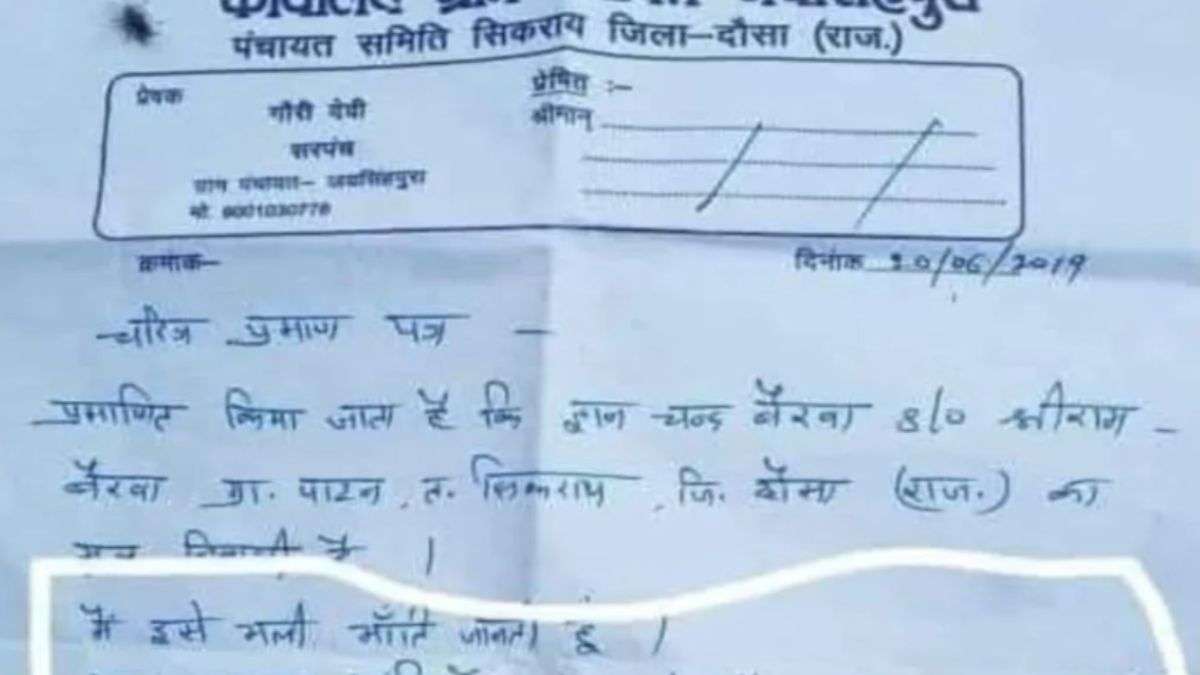 कार्यालय ग्राम
पंचायत समिति सिकराय जिला-दौसा (राज.)
प्रेषक
गौरी देवी
सरपंच
ग्राम पंचायत- जयसिंहपुरा
मो. 9001030778
प्रेषित :-
श्रीमान्
क्रमांक-
दिनांक 20/06/2019
चरित्र प्रमाण पत्र -
प्रमाणित किया जाता है कि ज्ञान चन्द बैरवा S/o श्रीराम -
बैरवा ग्रा. पाटन, त. सिकराय, जि. दौसा (राज.) का
मूल निवासी है ।
मैं इसे भली भाँति जानता हूं ।